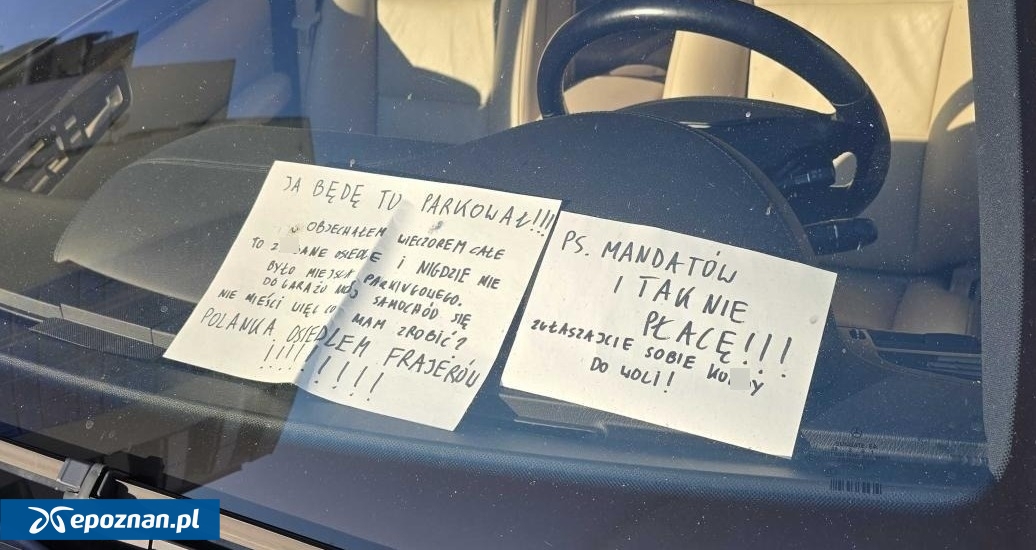 JA BĘDĘ TU PARKOWAŁ!!!
OBJECHAŁEM WIECZOREM CAŁE
TO OSIEDLE I NIGDZIE NIE
BYŁO MIEJSCA PARKINGOWEGO.
DO GARAŻU MÓJ SAMOCHÓD SIĘ
NIE MIEŚCI WIĘC CO MAM ZROBIĆ?
POLANKA OSIEDLEM FRAJERÓW
!!!!!!!!!
PS. MANDATÓW
I TAK NIE
PŁACĘ!!!
ZGŁASZAJCIE SOBIE
DO WOLI!
epoznan.pl